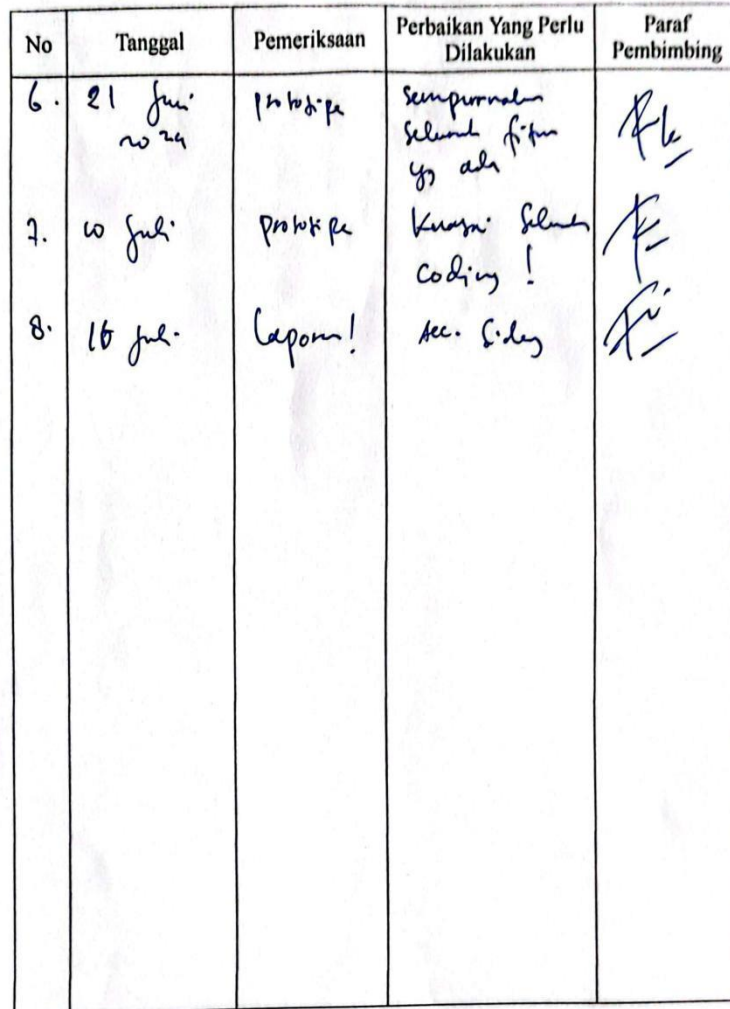 No Tanggal Pemeriksaan Perbaikan Yang Perlu Dilakukan Paraf Pembimbing
6. 21 Juni prototipe sempurnakan
2024 seluruh fitur
yg ada
7. 10 Juli prototipe Kuasai seluruh
coding !
8. 16 Juli Laporan! Acc. Sidang